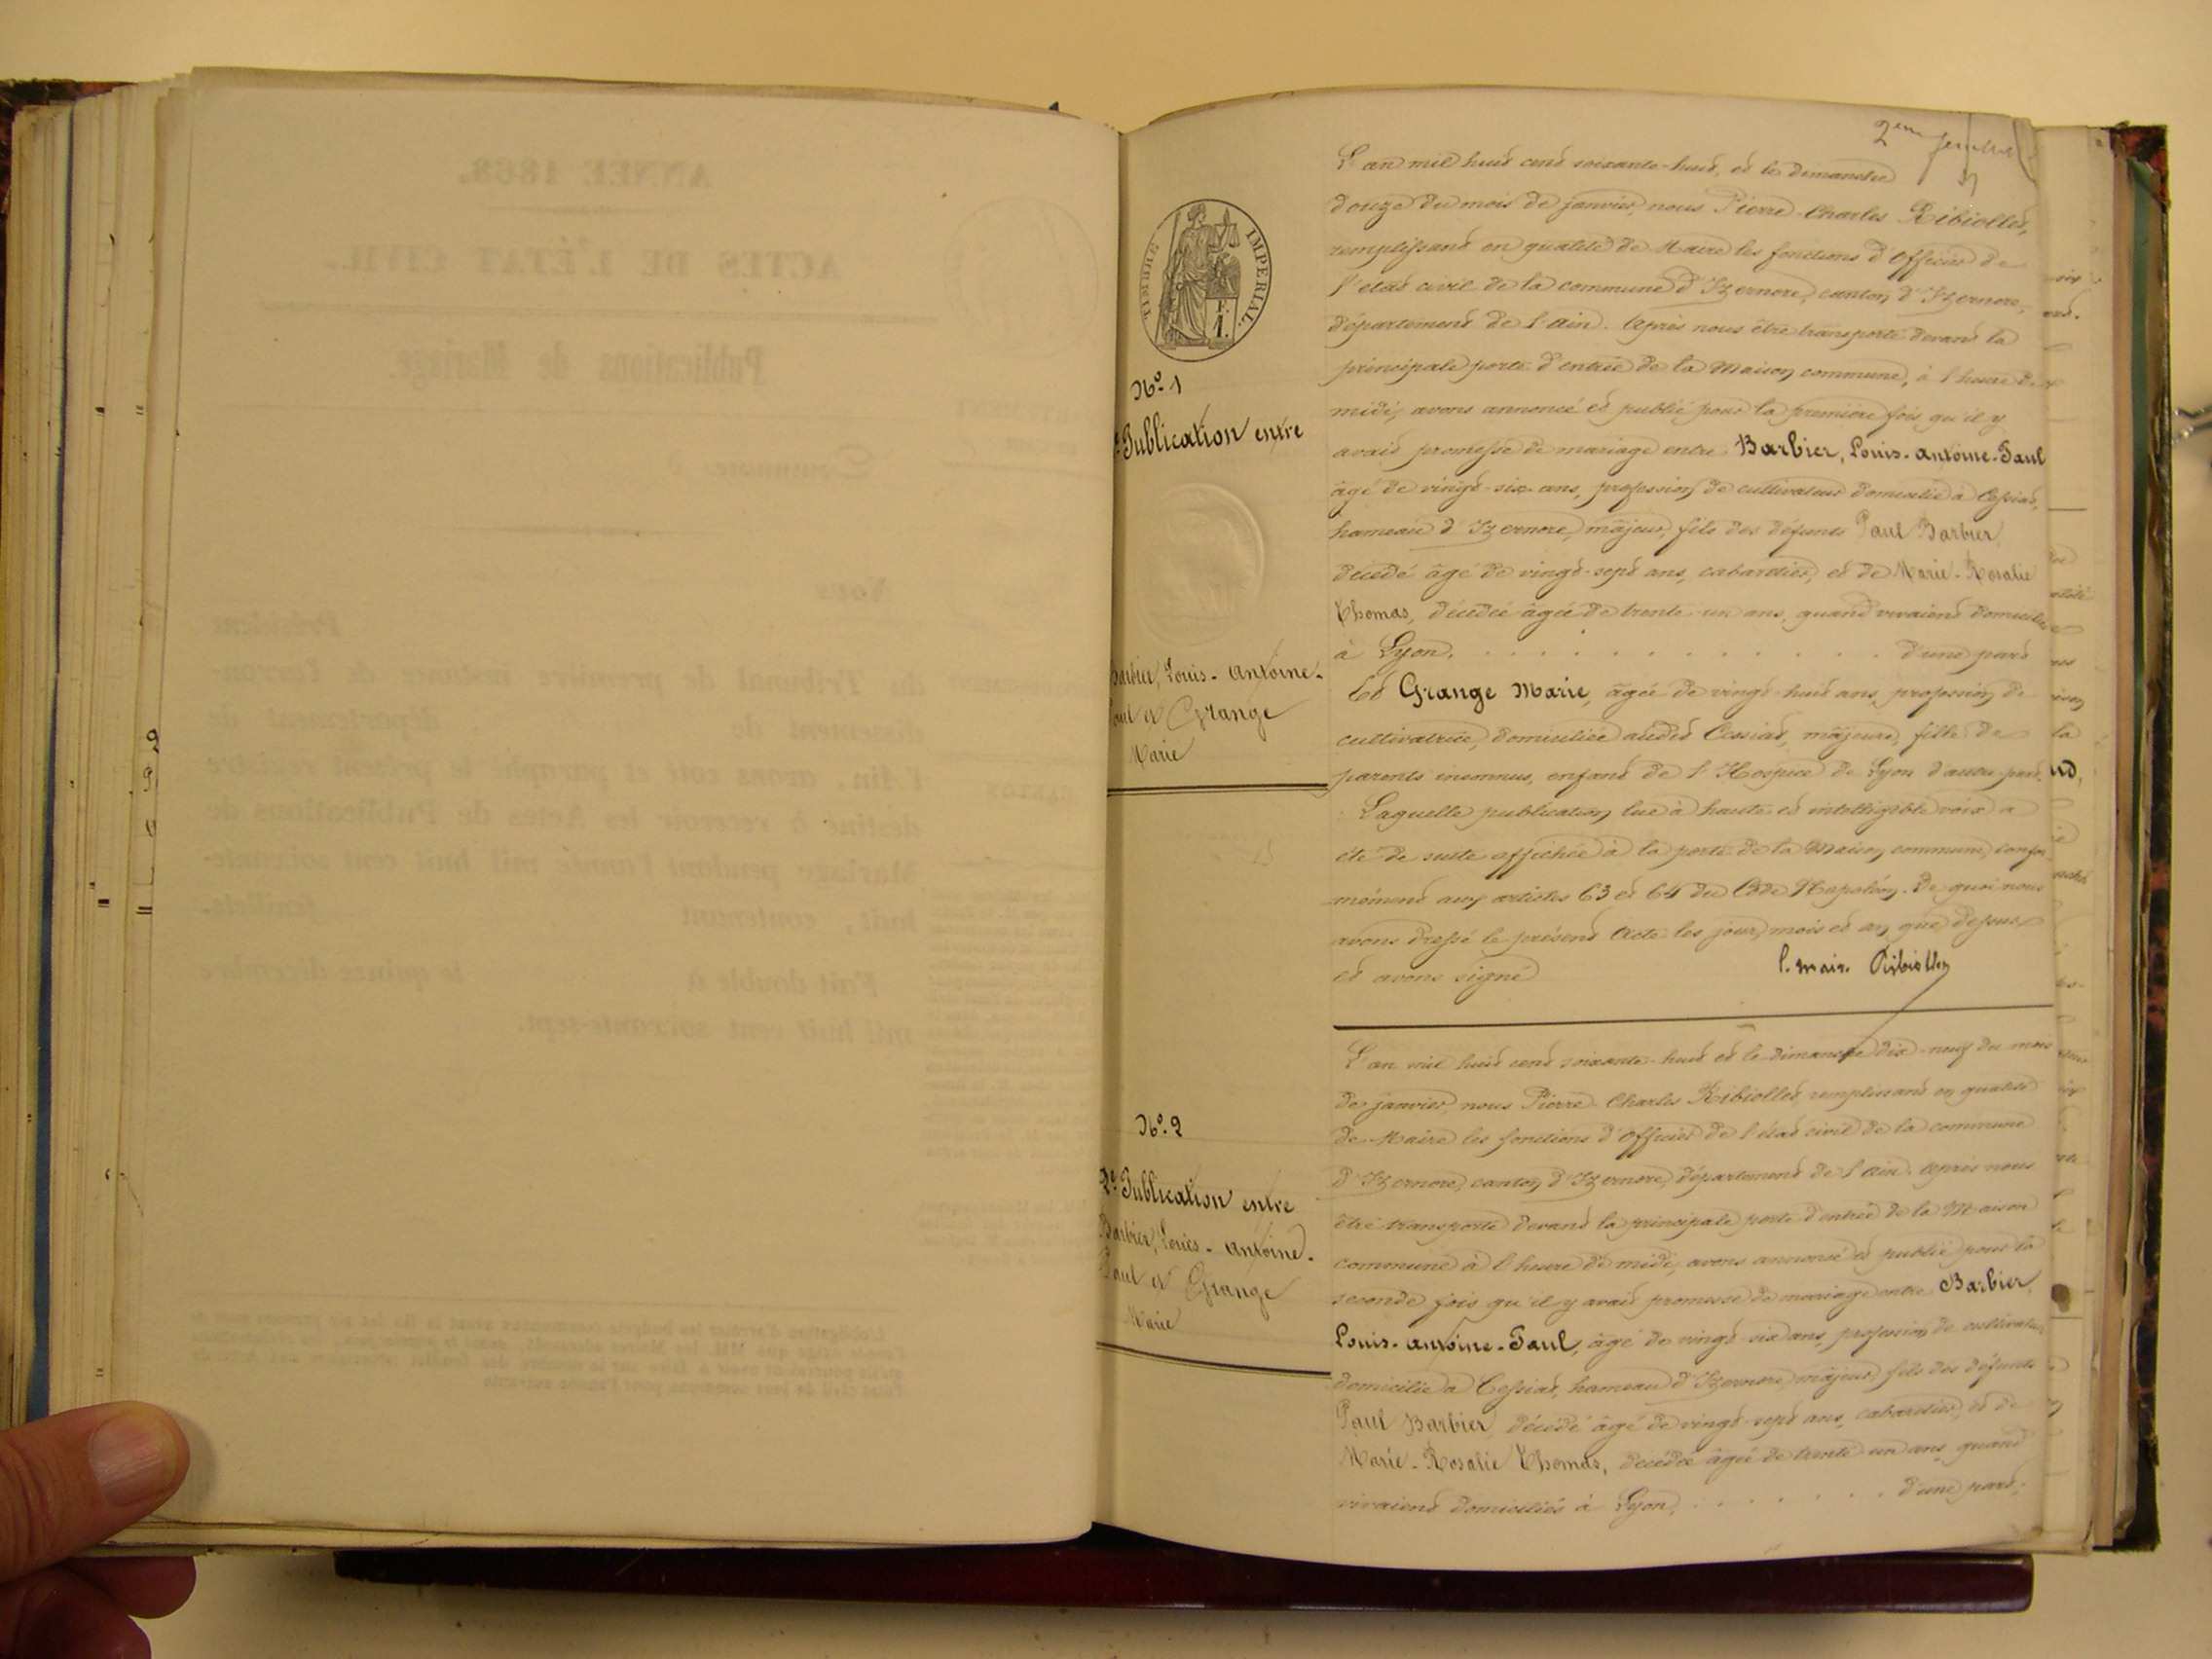 2em feuillet
TIMBRE IMPERIAL.
F.
1.
Nº 1
Publication entre
Barbier, Louis-Antoine-
Paul et Grange
Marie
L'an mil huit cent soixante-huit, et le dimanche
douze du mois de janvier, nous Pierre-Charles Ribiollet,
remplissant en qualité de Maire les fonctions d'Officier de
l'état civil de la commune d'Izernore, canton d'Izernore,
département de l'Ain. Après nous être transporté devant la
principale porte d'entrée de la Maison commune, à l'heure de
midi, avons annoncé et publié pour la première fois qu'il y
avait promesse de mariage entre Barbier, Louis-Antoine-Paul
âgé de vingt-six ans, profession de cultivateur domicilié à Cessiat,
hameau d'Izernore, majeur, fils des défunts Paul Barbier
décédé âgé de vingt-sept ans, cabaretier, et de Marie-Rosalie
Thomas, décédée âgée de trente-un ans, quand vivaient domiciliés
à Lyon. . . . . . . . . . . . . . d'une part
Et Grange Marie, âgée de vingt-huit ans, profession de
cultivatrice, domiciliée audit Cessiat, majeure, fille de
parents inconnus, enfant de l'Hospice de Lyon d'autre part.
Laquelle publication lue à haute et intelligible voix a
été de suite affichée à la porte de la Maison commune, confor-
mément aux articles 63 et 64 du Code Napoléon. De quoi nous
avons dressé le présent Acte les jour, mois et an que dessus
et avons signé
l. mair. Ribiollet
Nº 2
2e Publication entre
Barbier, Louis-Antoine-
Paul et Grange
Marie
L'an mil huit cent soixante-huit et le dimanche dix-neuf du mois
de janvier, nous Pierre Charles Ribiollet remplissant en qualité
de Maire les fonctions d'Officier de l'état civil de la commune
d'Izernore, canton d'Izernore, département de l'Ain. Après nous
être transporté devant la principale porte d'entrée de la Maison
commune à l'heure de midi, avons annoncé et publié pour la
seconde fois qu'il y avait promesse de mariage entre Barbier,
Louis-Antoine-Paul, âgé de vingt-six ans, profession de cultivateur
domicilié à Cessiat, hameau d'Izernore, majeur, fils des défunts
Paul Barbier décédé âgé de vingt-sept ans, cabaretier, et de
Marie-Rosalie Thomas, décédée âgée de trente-un ans, quand
vivaient domiciliés à Lyon, . . . . . . . d'une part;